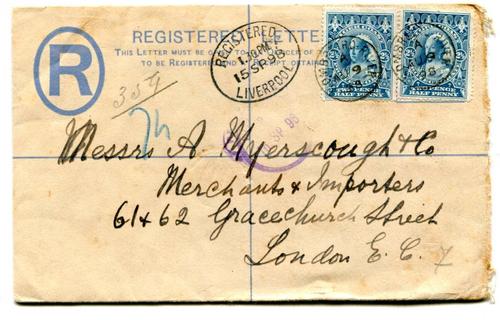 REGISTERED LETTER
THIS LETTER MUST BE TO AN OFFICER OF
TO BE REGISTERED AND A RECEIPT OBTAINED
R
REGISTERED
15 SP 98
LIVERPOOL
TWO PENCE
HALF PENNY
TWO PENCE
HALF PENNY
359
SP 98
Messrs A. Myerscough & Co
Merchants & Importers
61 & 62 Gracechurch Street
London E.C.